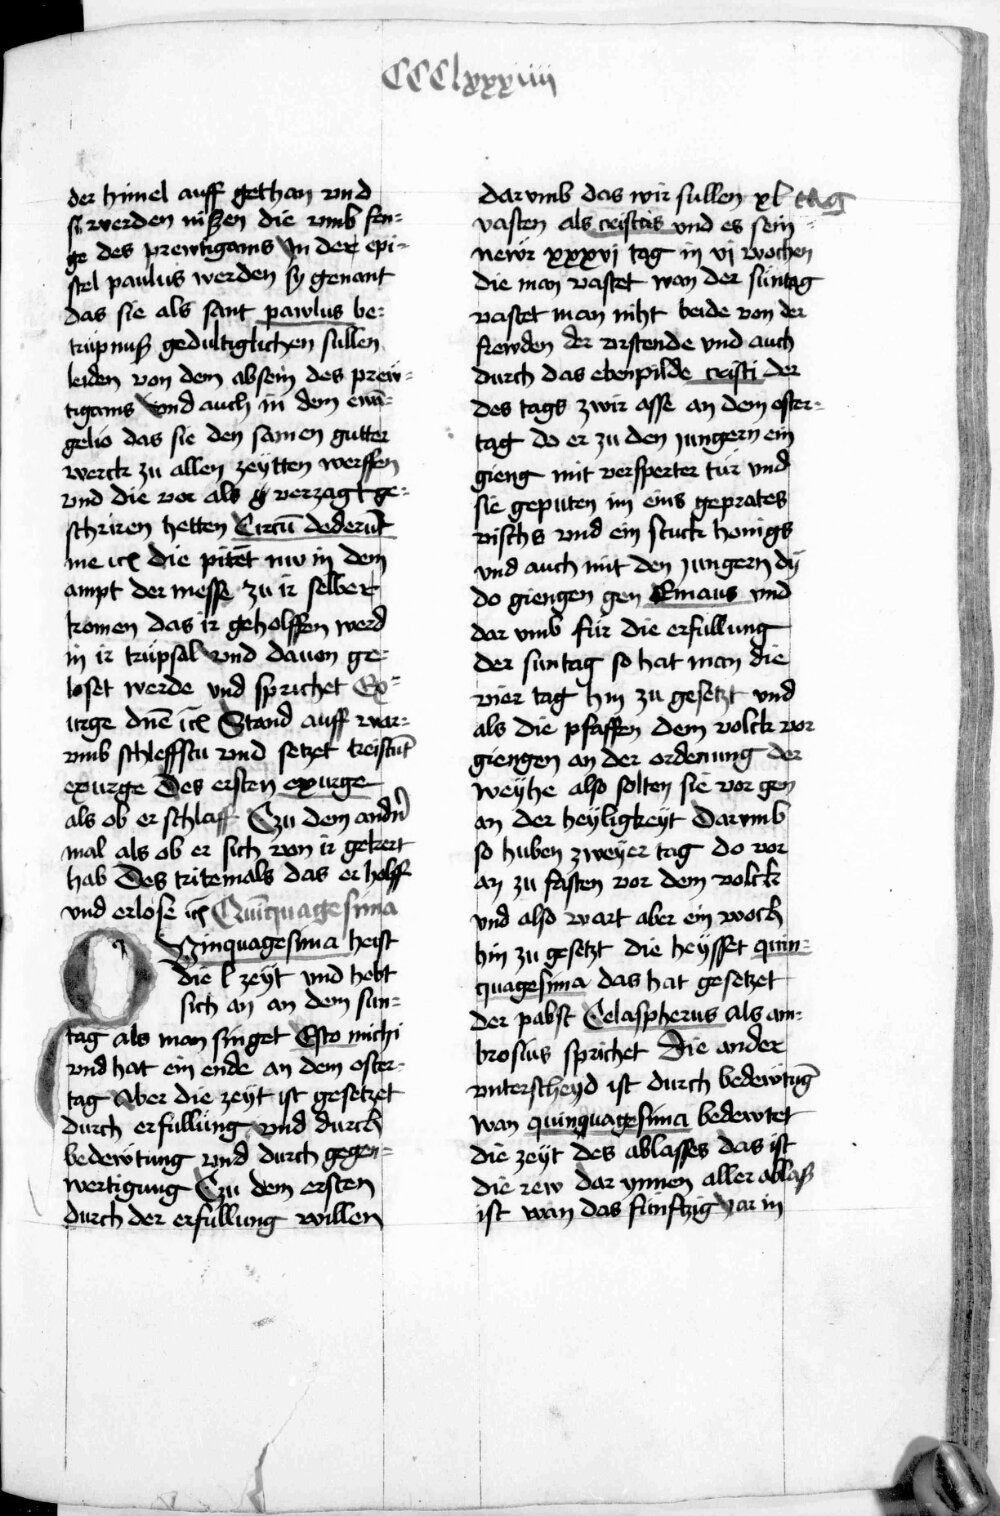 CCClxxxiiii
der himel auff gethan vnd
si werden nißen die vmb fen-
ge des prewtigams In der epi-
stel paulus werden sy genant
das sie als sant pawlus be-
trüpnuß gedultiglichen sullen
leiden von dem absein des prew-
tigams vnd auch in dem ewā-
gelio das sie den samen gutter
werck zu allen zeytten werffen
vnd die vor als verzagt ge-
schriren hetten Circū dederūt
me ⁊cͣ die pitēt nw in dem
ampt der messe zu ir selber
komen das ir geholffen werd
in ir trüpsal vnd dauon ge-
loset werde vnd sprichet Ex-
urge dn̄e ⁊cͣ Stand auff war-
vmb schleffstu vnd setzet treistūt
exurge Des ersten exurge
als ob er schlaff Czu dem andn̄
mal als ob er sich von ir gekert
hab Des tritemals das er helff
vnd erlose ⁊cͣ Quīquagesima
Quinquagesima heist
die l zeyt vnd hebt
sich an an dem sun-
tag als man singet Esto michi
vnd hat ein ende an dem oster-
tag Aber die zeyt ist gesetzet
durch erfullung vnd durch
bedewtung vnd durch gegen-
wertigung Czu dem ersten
durch der erfullung willen
dar vmb das wir sullen xl tag
vasten als cristus vnd es sein
newr xxxvj tag in vj wochen
die man vastet wan der suntag
vastet man niht beide von der
frewden der vrstende vnd auch
durch das ebenpilde cristi der
des tags zwir asse an dem oster-
tag do er zu den jungern ein
gieng mit versperter tür vnd
sie geputen im eins geprates
vischs vnd ein stuck honigs
vnd auch mit den jungern dy
do giengen gen Emaus vnd
dar vmb für die erfullung
der suntag so hat man die
vier tag hin zu gesetzt vnd
als die pfaffen dem volck vor
giengen an der ordenung der
weyhe also solten sie vor gen
an der heyligkeyt Darvmb
so huben zweyer tag do vor
an zu fasten vor dem volck
vnd also wart aber ein woch
hin zu gesetzt die heysset quin-
quagesima das hat gesetzet
der pabst Celaspherus als am-
brosius sprichet Die ander
vnterscheyd ist durch bedewtūg
wan quinquagesima bedewtet
die zeyt des ablasses das ist
die rew dar ynnen aller ablaß
ist wan das funftzig jar in